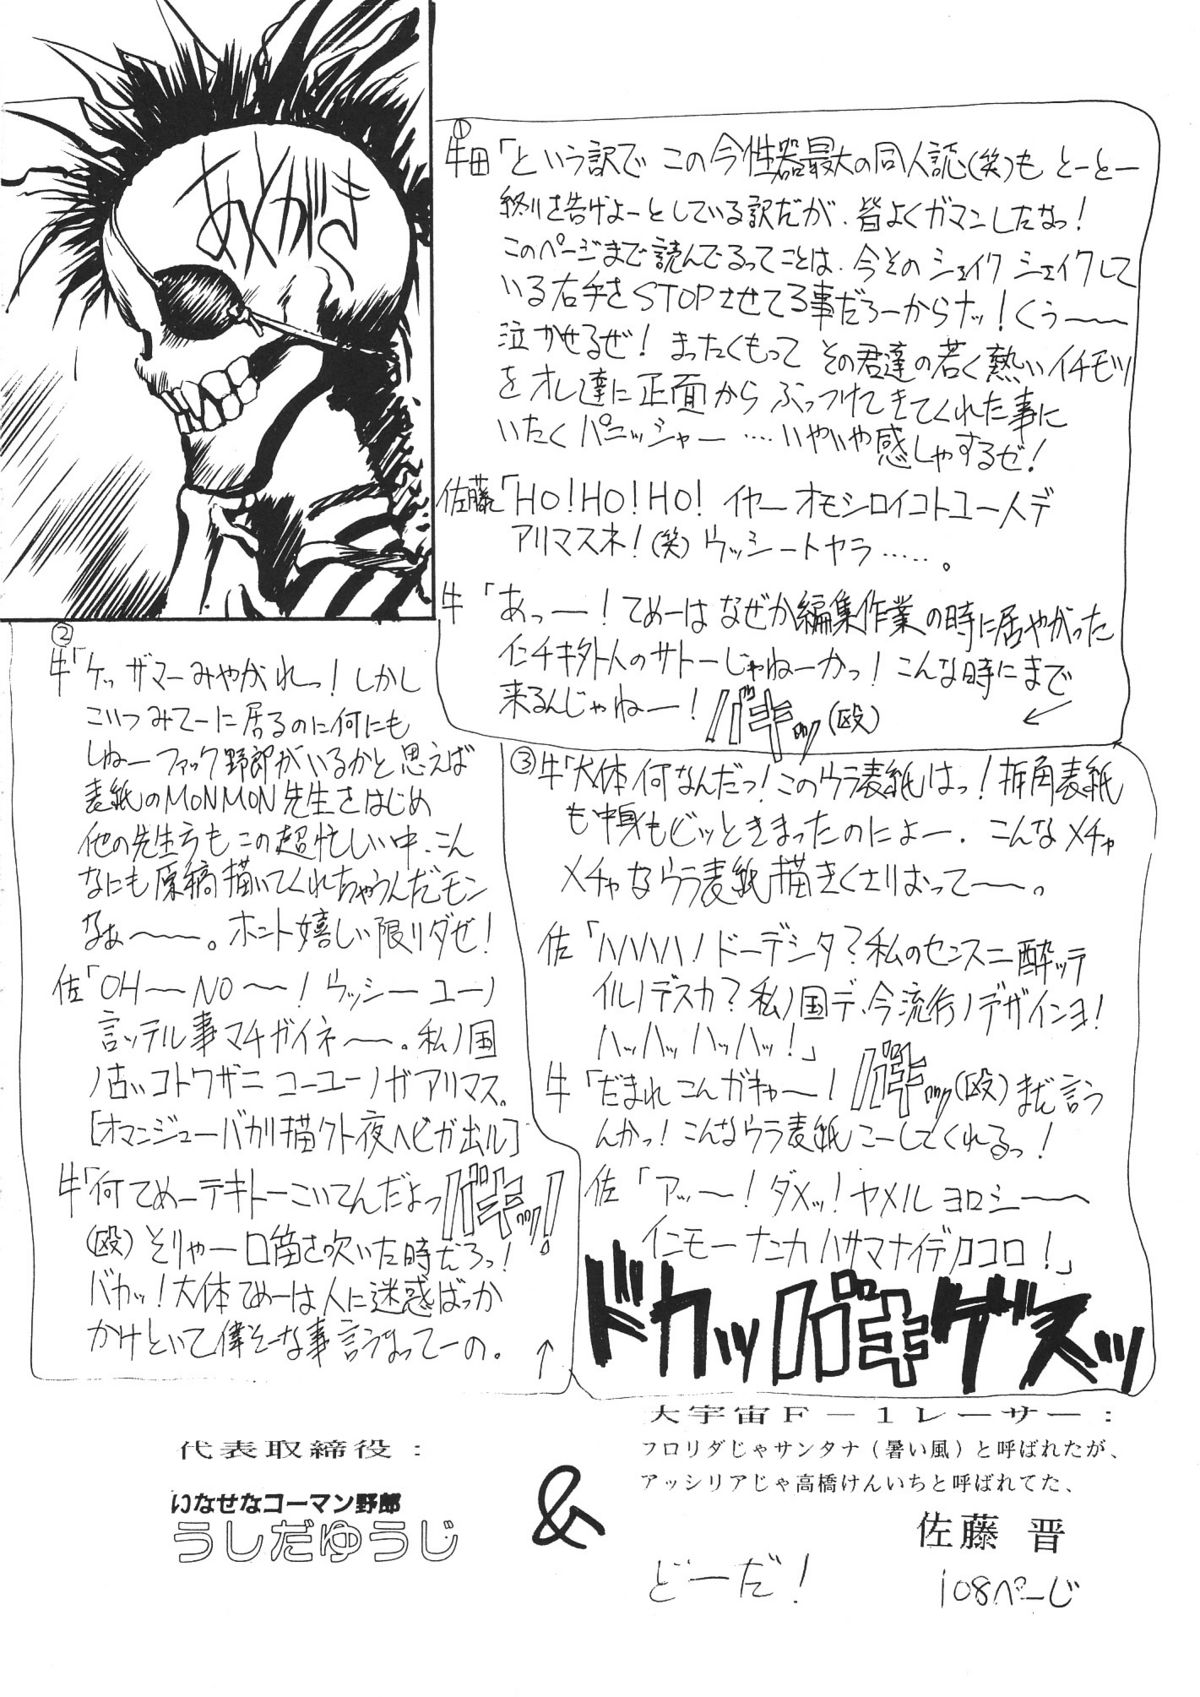 あくがき
①
牛田「という訳で この今性器最大の同人誌(笑)も とーとー
終りを告げよーとしている訳だが、皆よくガマンしたなっ！
このページまで読んでるってことは、今そのシェイク シェイクして
いる右手をSTOPさせてる事だろーからナッ！くぅ〜〜
泣かせるぜ！まったくもって その君達の若く熱いイチモツ
をオレ達に正面から ぶっつけてきてくれた事に
いたくパニッシャー‥‥いやいや感しゃするゼ！
佐藤「HO！HO！HO！ イヤーオモシロイコトユー人デ
アリマスネ！(笑)ウッシートヤラ‥‥‥。
牛「あっ―！てめーはなぜか編集作業の時に居やがった
インチキ外人のサトーじゃねーかっ！こんな時にまで
来るんじゃねー！バキッ(殴)
②
牛「ケッザマーみやがれっ！しかし
こいつみてーに居るのに何にも
しねーファック野郎がいるかと思えば
表紙のMONMON先生をはじめ
他の先生方もこの超忙しい中、こん
なにも原稿描いてくれちゃうんだモン
なぁ〜〜。ホント嬉しい限りダゼ！
佐「OH〜NO〜！ウッシーユーノ
言ッテル事マチガイネ〜。私ノ国
ノ古いコトワザニコーユーノガアリマス。
[オマンジューバカリ描クト夜ヘビガ出ル]
牛「何てめーテキトーこいてんだよっバキッ！
(殴)そりゃー口笛を吹いた時だろっ！
バカッ！大体てめーは人に迷惑ばっか
かけといて偉そーな事言うなってーの。
↑
③牛「大体何なんだっ！このウラ表紙はっ！折角表紙
も中身もビッときまったのによー、こんなメチャ
メチャなウラ表紙描きくさりおって〜。
佐「ハハハハ！ドーデシタ？私のセンスニ酔ッテ
イルノデスカ？私ノ国デ、今流行ノデザインヨ！
ハッハッハッハッ！」
牛「だまれこんガキャ〜！バキッ(殴)まだ言う
んかっ！こんなウラ表紙こーしてくれるっ！
佐「アッ〜！ダメッ！ヤメルヨロシ〜
インモーナンカハサマナイデノココロ！」
ドカッバキゲスッ
代表取締役：
いなせなコーマン野郎
うしだゆうじ
&
大宇宙F－1レーサー：
フロリダじゃサンタナ（暑い風）と呼ばれたが、
アッシリアじゃ高橋けんいちと呼ばれてた、
佐藤 晋
どーだ！
108ぺーじ